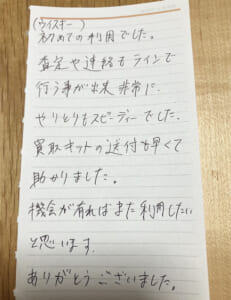 (ウイスキー)
初めての利用でした。
査定や連絡もラインで
行う事が出来 非常に
やりとりもスピーディーでした。
買取キットの送付も早くて
助かりました。
機会が有ればまた利用したい
と思います。
ありがとうございました。